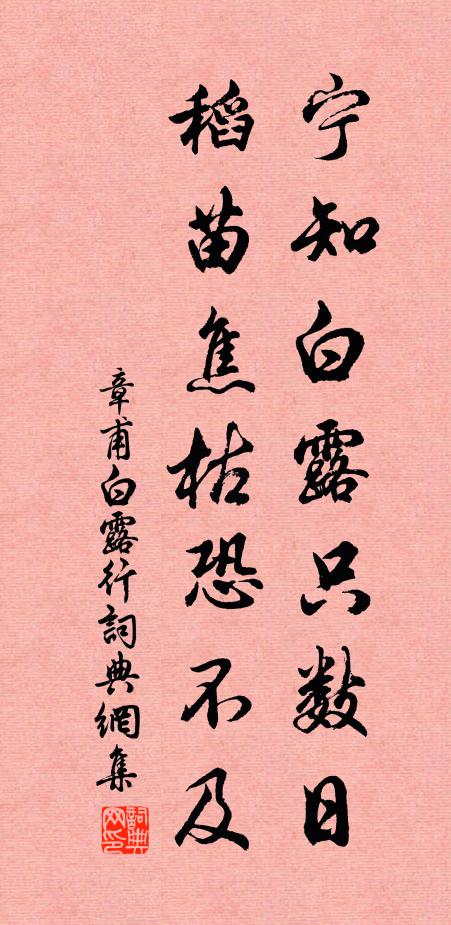 宁知白露只数日
稻苗焦枯恐不及
章甫白露行詞典網集
詞典网印